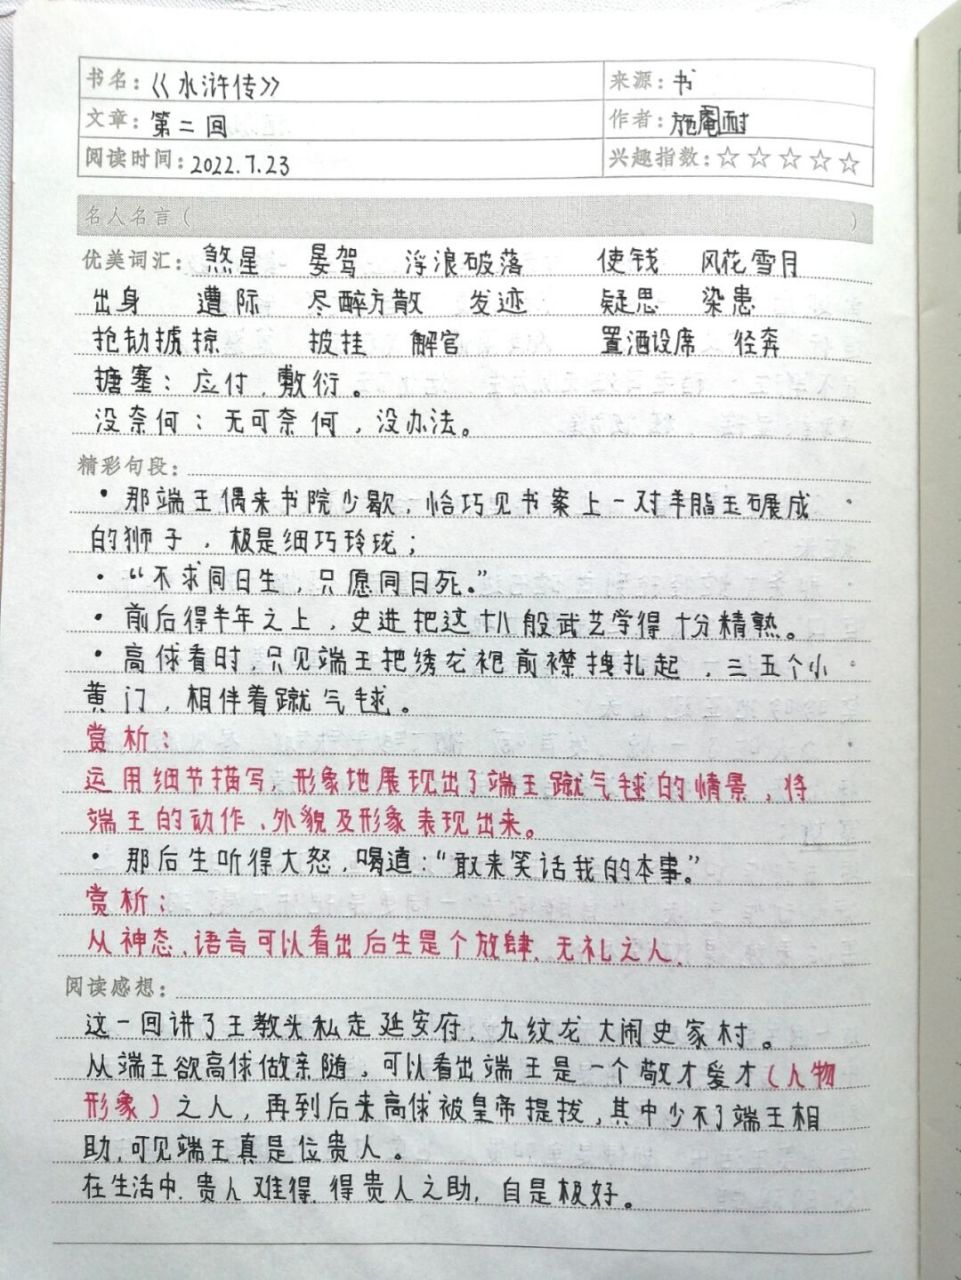 书名：《水浒传》 来源：书
文章：第二回 作者：施耐庵
阅读时间：2022.7.23 兴趣指数：☆☆☆☆☆
名人名言（ ）
优美词汇： 煞星 晏驾 浮浪破落 使钱 风花雪月
出身 遭际 尽醉方散 发迹 疑思 染患
抢劫掳掠 披挂 解官 置酒设席 径奔
搪塞：应付，敷衍。
没奈何：无可奈何，没办法。
精彩句段：
·那端王偶来书院少歇，恰巧见书案上一对羊脂玉碾成
的狮子，极是细巧玲珑；
·“不求同日生，只愿同日死。”
·前后得半年之上，史进把这十八般武艺学得十分精熟。
·高俅看时，只见端王把绣龙袍前襟拽扎起，三五个小
黄门，相伴着蹴气毬。
赏析：
运用细节描写，形象地展现出了端王蹴气毬的情景，将
端王的动作、外貌及形象表现出来。
·那后生听得大怒，喝道：“敢来笑话我的本事。”
赏析：
从神态、语言可以看出后生是个放肆、无礼之人。
阅读感想：
这一回讲了王教头私走延安府，九纹龙大闹史家村。
从端王欲高俅做亲随，可以看出端王是一个敬才爱才（人物
形象）之人，再到后来高俅被皇帝提拔，其中少不了端王相
助，可见端王真是位贵人。
在生活中，贵人难得，得贵人之助，自是极好。